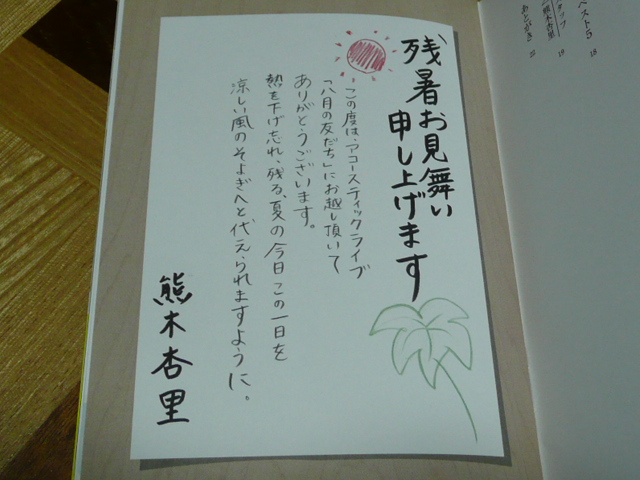 ベスト5 18
タッフ 19
熊木杏里
あとがき 22
残暑お見舞い
申し上げます
この度は、アコースティックライブ
「八月の友だち」にお越し頂いて
ありがとうございます。
熱を下げ忘れ、残る、夏の今日この一日を
涼しい風のそよぎへと代えられますように。
熊木杏里